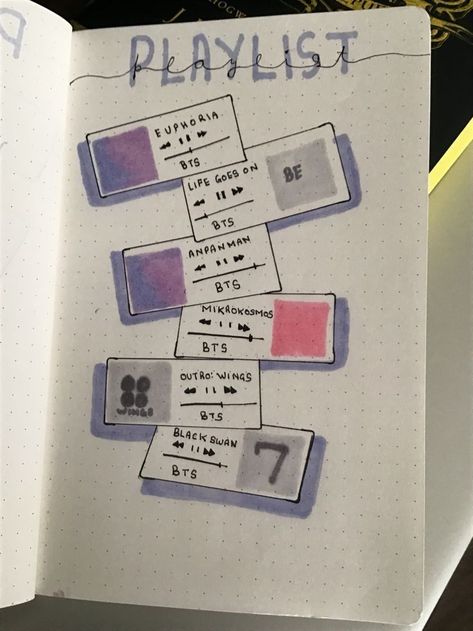 PLAYLIST
playlist
EUPHORIA
BTS
LIFE GOES ON
BE
BTS
ANPANMAN
BTS
MIKROKOSMOS
BTS
OUTRO: WINGS
WINGS
BTS
BLACK SWAN
7
BTS